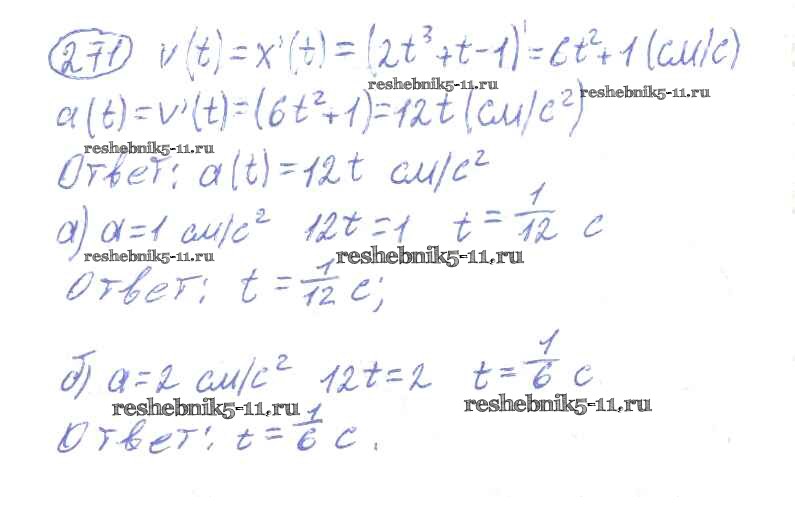 271 v(t)=x'(t)=(2t³+t-1)'=6t²+1(см/с)
reshebnik5-11.ru reshebnik5-11.ru
a(t)=v'(t)=(6t²+1)=12t(см/с²)
reshebnik5-11.ru
Ответ: a(t)=12t см/с²
а) a=1 см/с² 12t=1 t=1/12 с
reshebnik5-11.ru reshebnik5-11.ru
Ответ: t=1/12 с;
б) a=2 см/с² 12t=2 t=1/6 с
reshebnik5-11.ru reshebnik5-11.ru
Ответ: t=1/6 с.